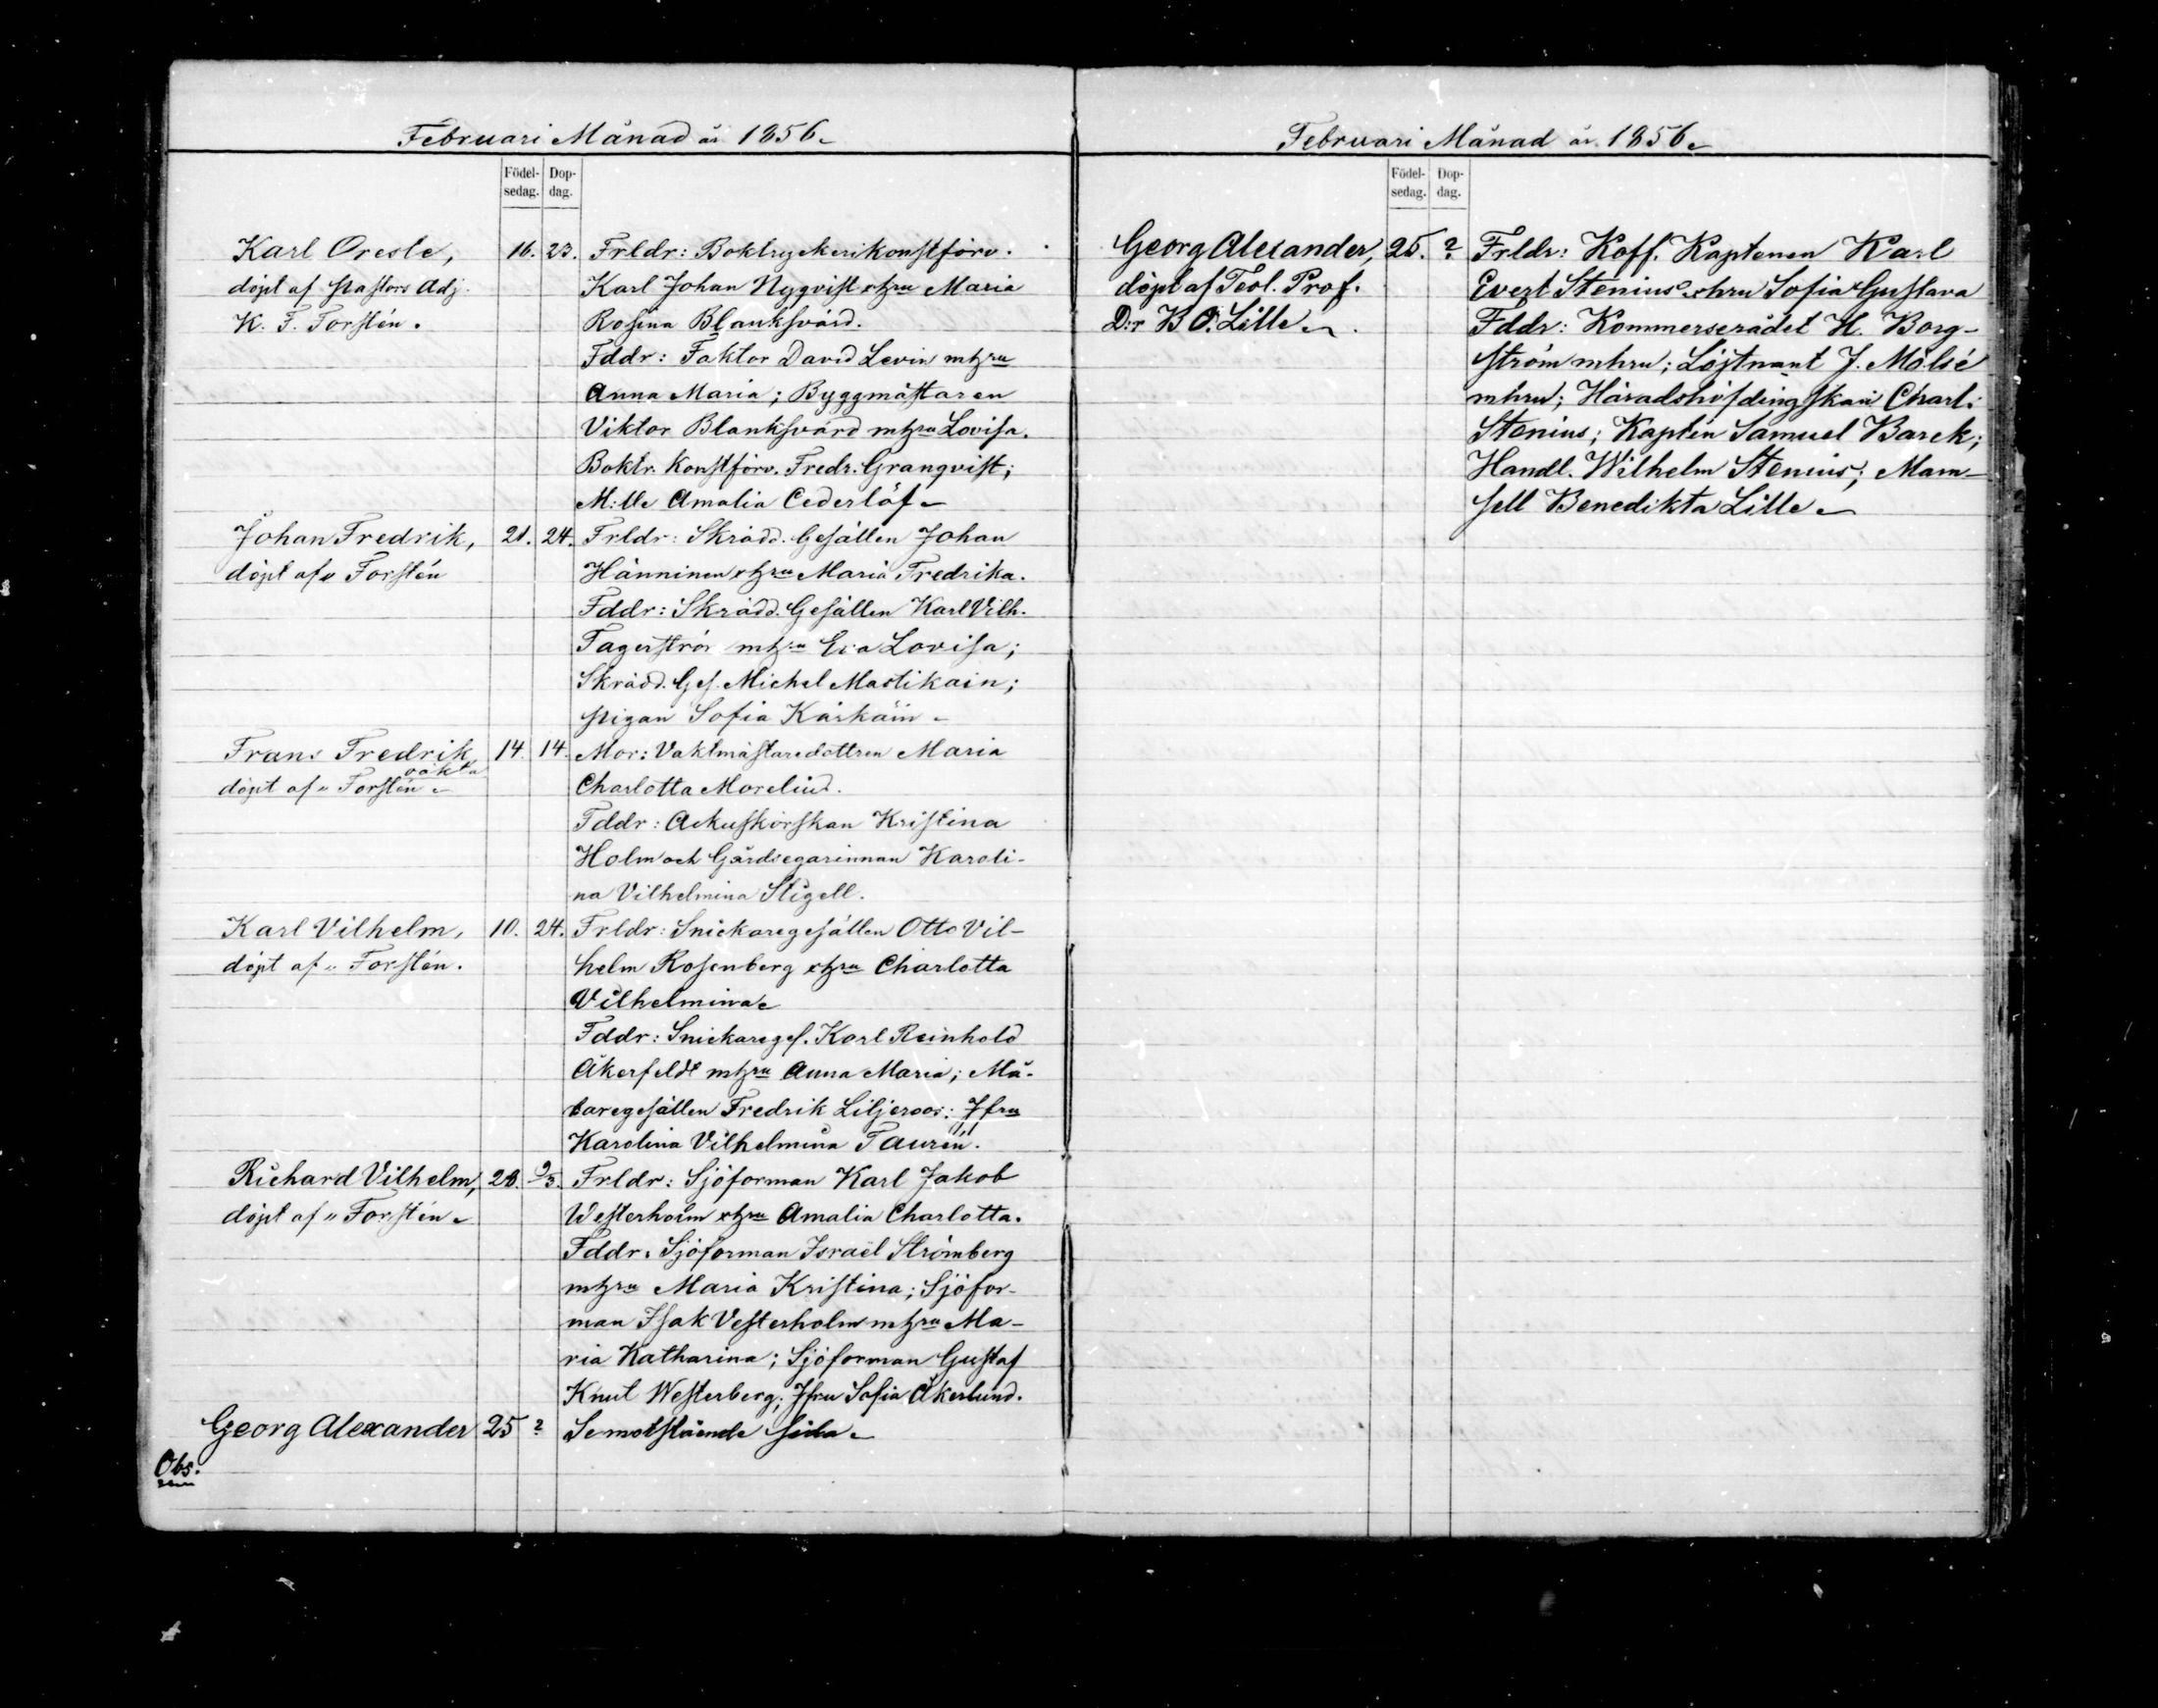 Februari Månad år 1856.
Födel-
sedag.
Dop-
dag.
Karl Oreste, 16. 23. Frldr: Boktryckerikonstförv.
döpt af Pastors Adj. Karl Johan Nyqvist o hru Maria
K. F. Forstén. Rosina Blanksvärd.
Fddr: Faktor David Levin m hru
Anna Maria; Byggmästaren
Viktor Blanksvärd m hru Lovisa.
Boktr. Konstförv. Fredr. Granqvist;
M:lle Amalia Cederlöf
Johan Fredrik, 21. 24. Frldr: Skrädd. Gesällen Johan
döpt af " Forstén Hänninen o hru Maria Fredrika.
Fddr: Skrädd. Gesällen Karl Vilh.
Fagerström m hru Eva Lovisa;
Skrädd. Ges. Michel Mastikain;
Pigan Sofia Kärkäin
Frans Fredrik 14. 14. Mor: Vaktmästaredottren Maria
oäkta
döpt af " Forstén Charlotta Morelius.
Fddr: Ackuskörskan Kristina
Holm och Gårdsegarinnan Karoli-
na Vilhelmina Stigell.
Karl Vilhelm, 10. 24. Frldr: Snickaregesällen Otto Vil-
döpt af " Forstén. helm Rosenberg o hru Charlotta
Vilhelmina
Fddr: Snickareges. Karl Reinhold
Åkerfeldt m hru Anna Maria; Må-
laregesällen Fredrik Liljeroos: Jfru
Karolina Vilhelmina Taurén.
Richard Vilhelm, 28. 9/3. Frldr: Sjöforman Karl Jakob
döpt af " Forstén Westerholm o hru Amalia Charlotta.
Fddr. Sjöforman Israël Strömberg
m hru Maria Kristina; Sjöfor-
man Isak Vesterholm m hru Ma-
ria Katharina; Sjöforman Gustaf
Knut Westerberg; Jfru Sofia Åkerlund.
Georg Alexander 25 ? Se motstående sida
Obs.
Februari Månad år 1856.
Födel-
sedag.
Dop-
dag.
Georg Alexander, 25. ? Frldr: Koff. Kaptenen Karl
döpt af Teol. Prof. Evert Stenius o hru Sofia Gustava
D:r B O. Lille Fddr: Kommerserådet H. Borg-
ström m hru; Löjtnant J. Mölsé
m hru; Häradshöfdingskan Charl:
Stenius; Kaptén Samuel Barck;
Handl. Wilhelm Stenius; Mam-
sell Benedikta Lille